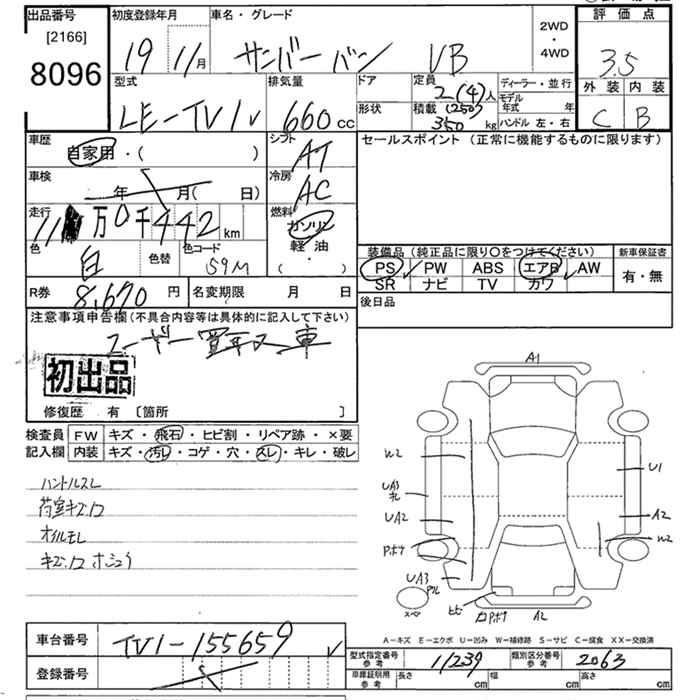 出品番号
[2166]
8096
初度登録年月
19 11月
車名・グレード
サンバーバン VB
2WD
・
4WD
評価点
3.5
外装 内装
C B
型式
LE-TV1
排気量
660cc
ドア
形状
定員
2(4)人
積載 (250)
350kg
ディーラー・並行
モデル年式 年
ハンドル 左・右
車歴
自家用・( )
シフト
AT
セールスポイント (正常に機能するものに限ります)
車検
年 月( 日)
冷房
AC
走行
11万0千442km
燃料
ガソリン
軽油
・( )
色
白
色替
色コード
59M
装備品(純正品に限り〇をつけてください)
PS PW ABS エアB AW
SR ナビ TV カワ
新車保証書
有・無
R券
8,670円
名変期限 月 日
後日品
注意事項申告欄(不具合内容等は具体的に記入して下さい)
ユーザー買取車
初出品
修復歴 有 〔箇所 〕
検査員
記入欄
FW キズ・飛石・ヒビ割・リペア跡・×要
内装 キズ・汚レ・コゲ・穴・スレ・キレ・破レ
ハンドルスレ
荷室キズ凹
オイルモレ
キズ凹ホシュウ
A1
W2
U1
UA3
UA2
A2
Pボケ
W2
UA3
スペア
ヒビ
A2
A－キズ E－エクボ U－凹み W－補修跡 S－サビ C－腐食 XX－交換済
車台番号
TV1-155659
登録番号
型式指定番号
参考
11239
類別区分番号
参考
2063
車庫証明用
参考
長さ cm
幅 cm
高さ cm